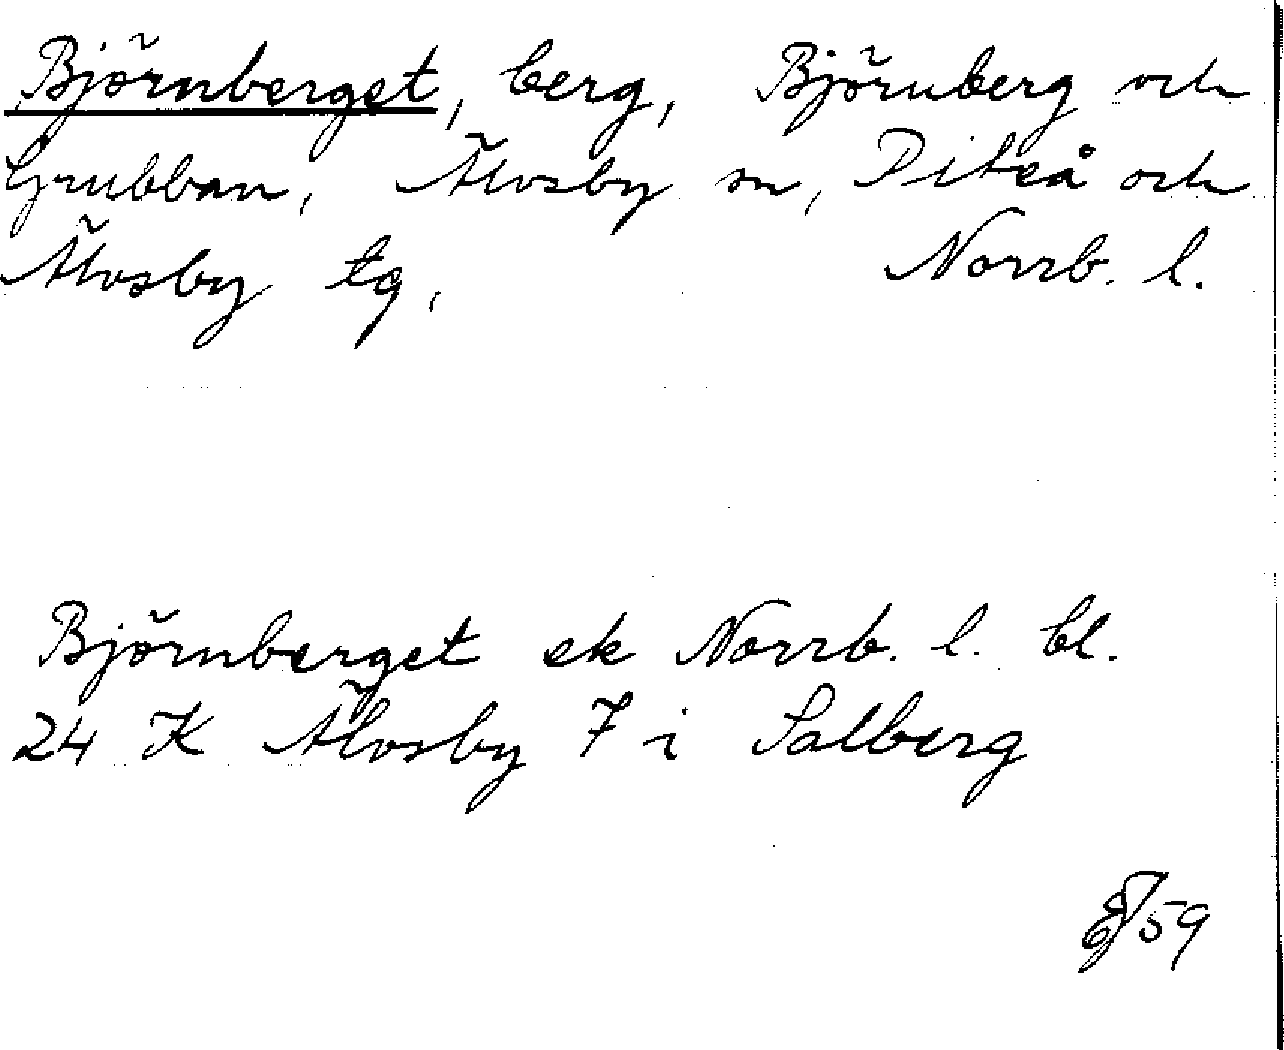 Björnberget, berg, Björnberg och
Grubban, Älvsby sn, Piteå och
Älvsby tg, Norrb. l.
Björnberget ek Norrb. l. bl.
24 K Älvsby 7 i Salberg
59